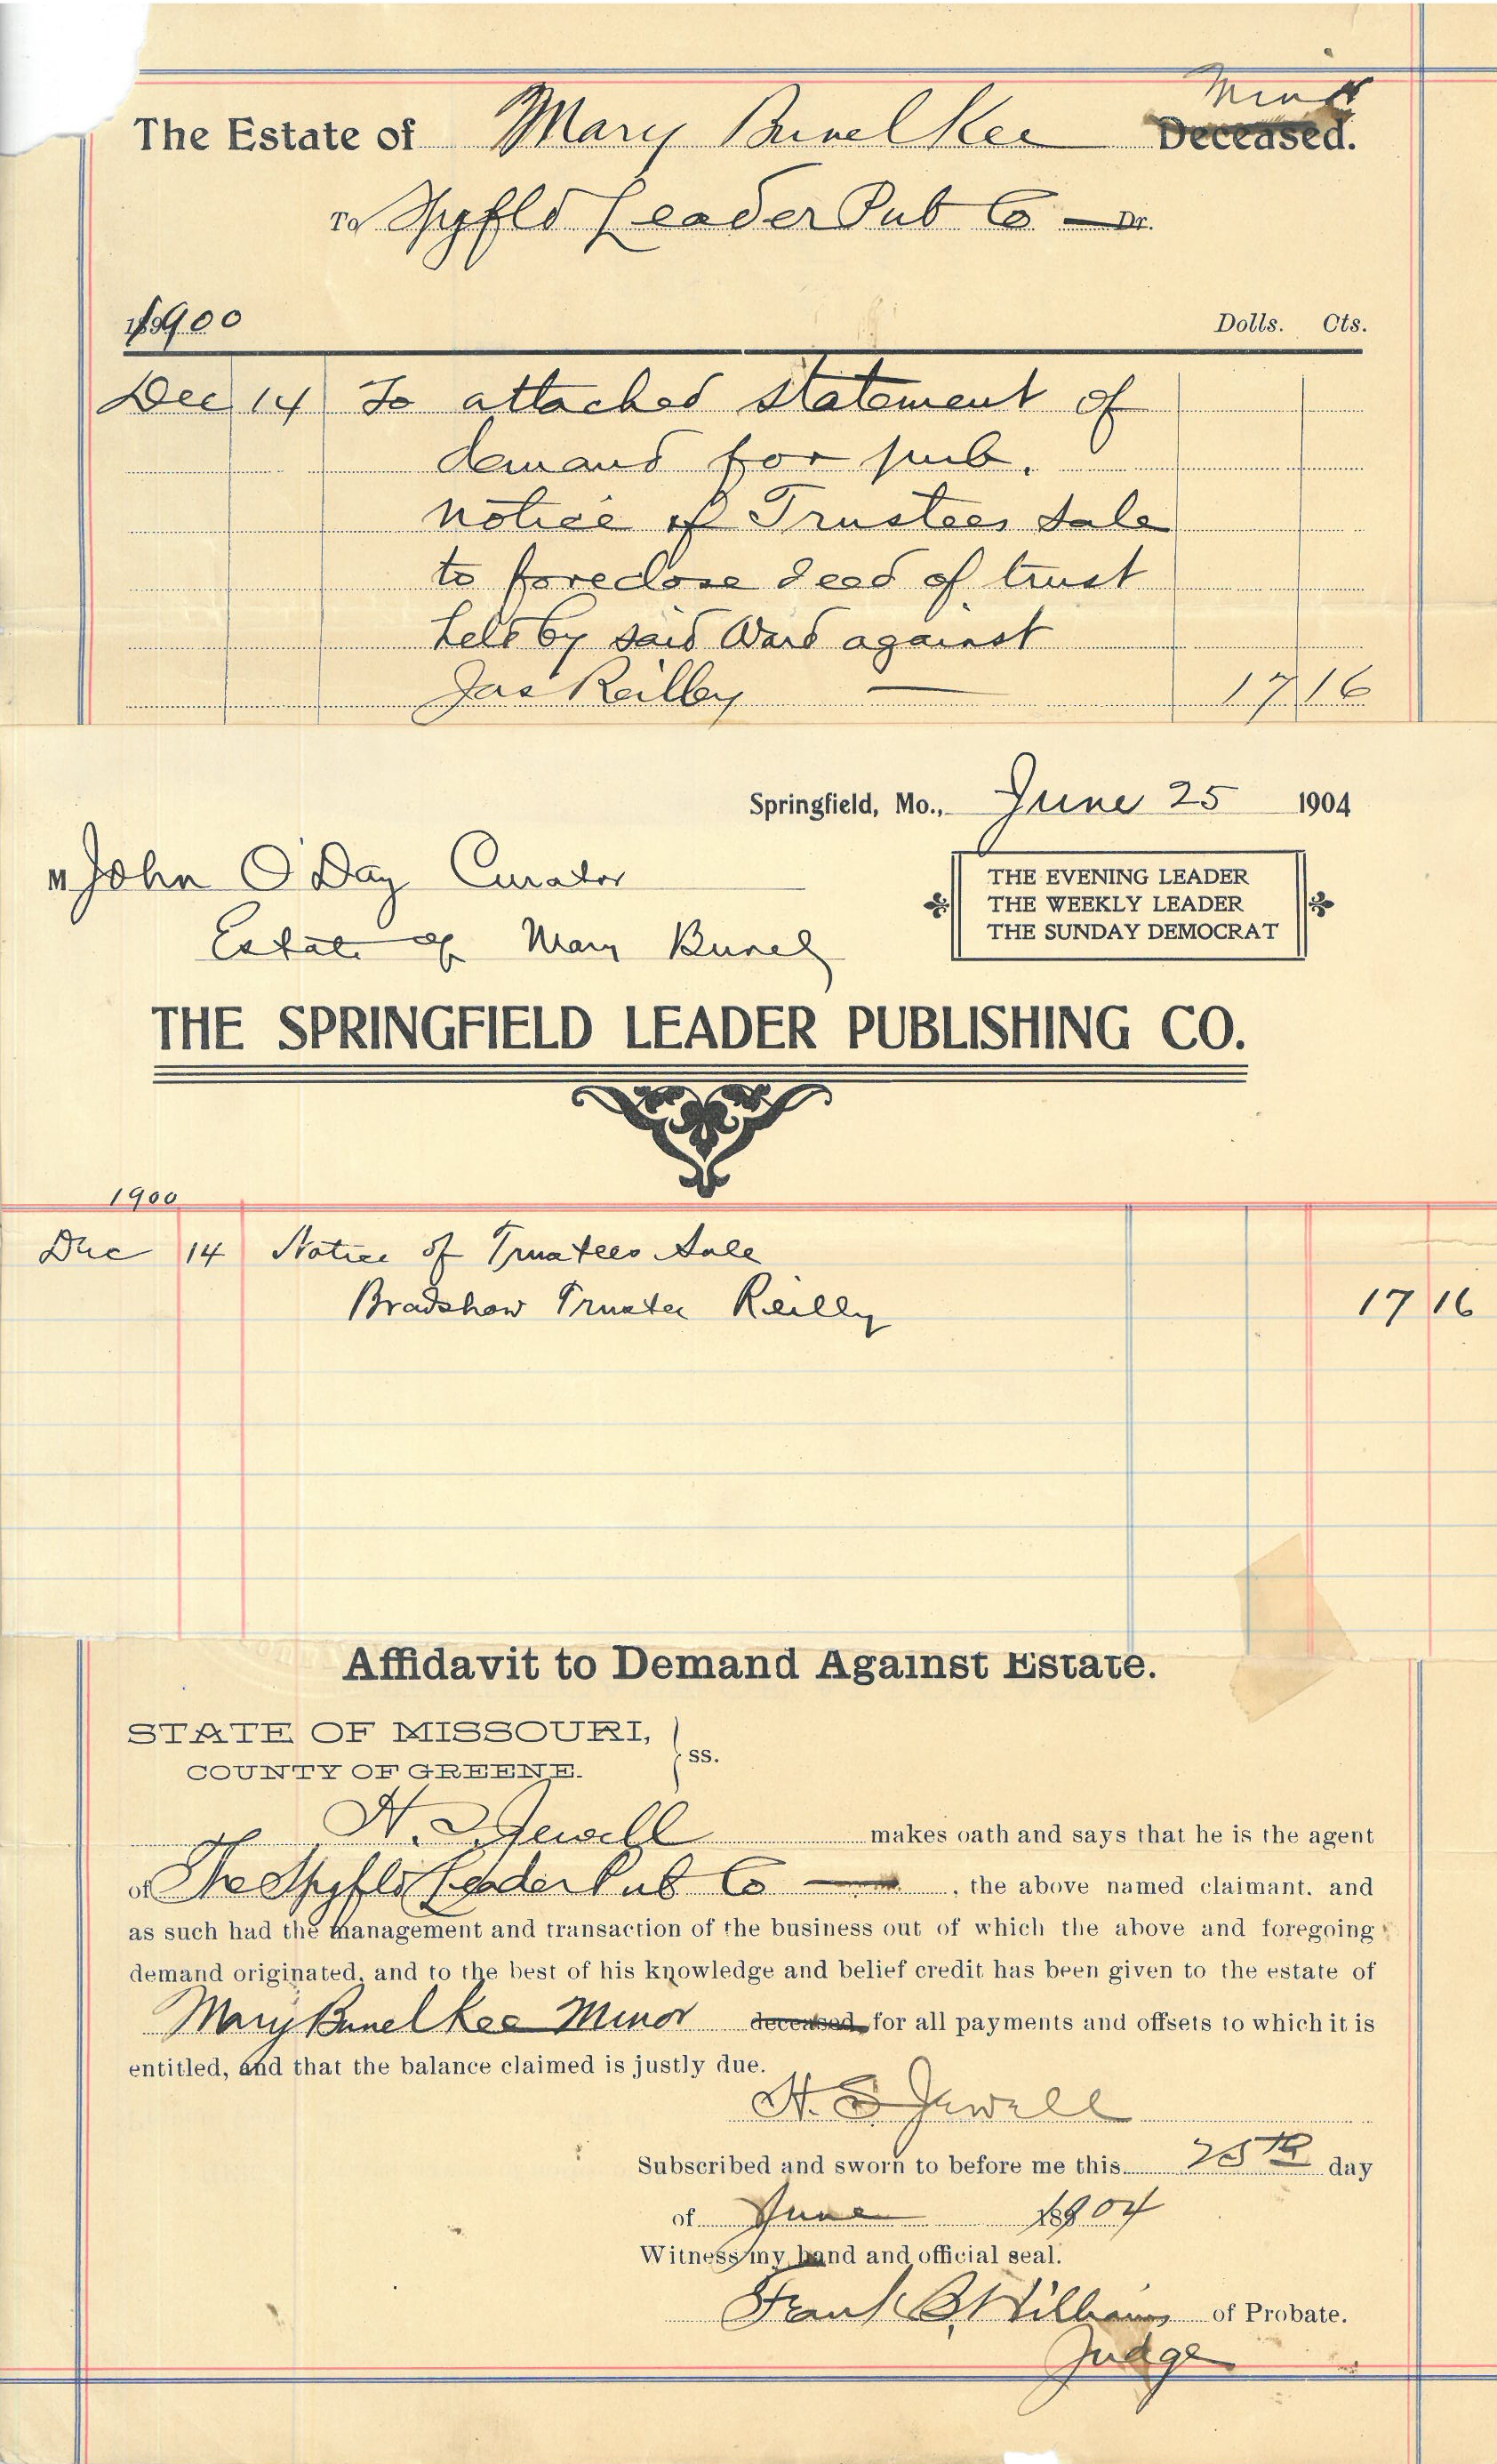 Minor
The Estate of Mary Bunel Kee Deceased.
To Spgfld Leader Pub Co — Dr.
1900
Dolls. Cts.
Dec 14 To attached statement of
demand for pub.
notice of Trustees sale
to foreclose deed of trust
held by said Ward against
Jas Reilley — 17 16
Springfield, Mo., June 25 1904
M John O'Day Curator
Estate of Mary Bunel
THE EVENING LEADER
THE WEEKLY LEADER
THE SUNDAY DEMOCRAT
THE SPRINGFIELD LEADER PUBLISHING CO.
1900
Dec 14 Notice of Trustees Sale
Bradshaw Trustee Reilly 17 16
Affidavit to Demand Against Estate.
STATE OF MISSOURI,
COUNTY OF GREENE. } ss.
H. S. Jewell makes oath and says that he is the agent
of The Spgfld Leader Pub Co —, the above named claimant. and
as such had the management and transaction of the business out of which the above and foregoing
demand originated, and to the best of his knowledge and belief credit has been given to the estate of
Mary Bunel Kee Minor deceased, for all payments and offsets to which it is
entitled, and that the balance claimed is justly due.
H. S. Jewell
Subscribed and sworn to before me this 25th day
of June 1904
Witness my hand and official seal.
Frank B. Williams of Probate.
Judge